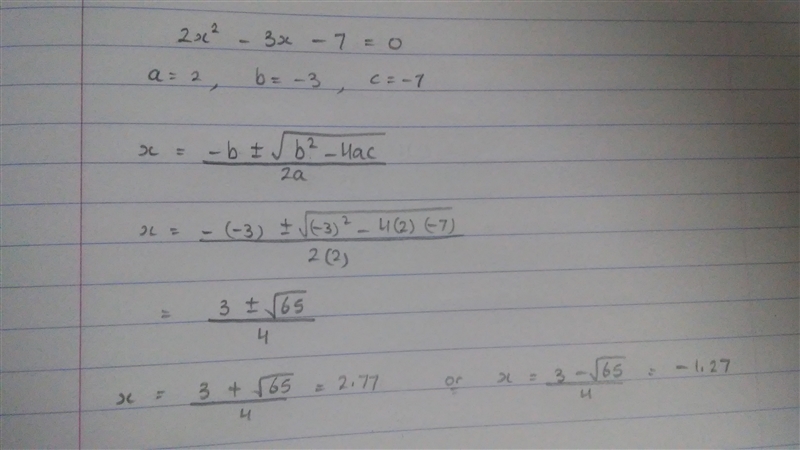 2x² - 3x - 7 = 0
a = 2, b = -3, c = -7
x = (-b ± √(b² - 4ac)) / 2a
x = (-(-3) ± √((-3)² - 4(2)(-7))) / 2(2)
= (3 ± √65) / 4
x = (3 + √65) / 4 = 2.77 or x = (3 - √65) / 4 = -1.27